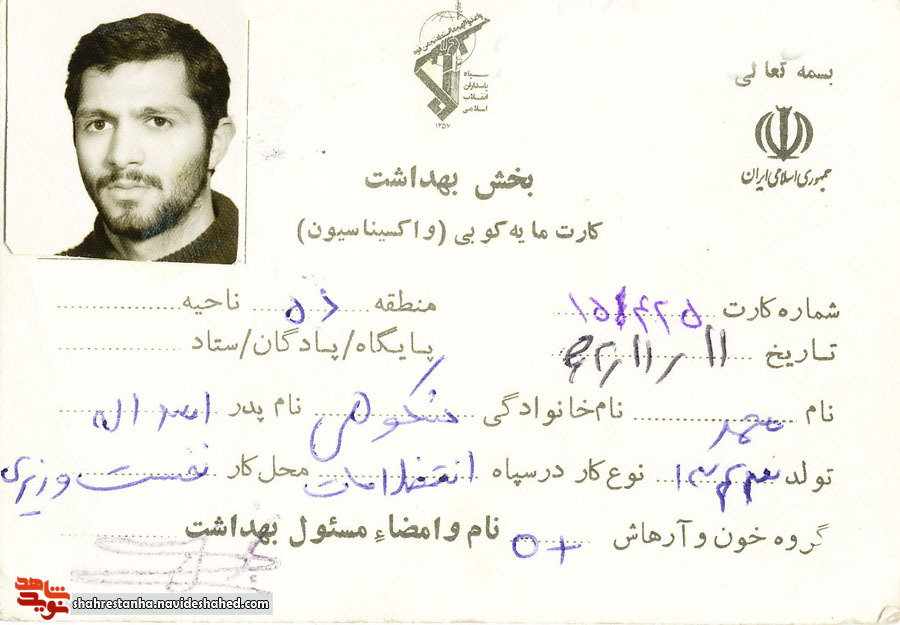 بسمه تعالی
سپاه
پاسداران
انقلاب
اسلامی
۱۳۵۷
جمهوری اسلامی ایران
بخش بهداشت
کارت مایه کوبی (واکسیناسیون)
شماره کارت منطقه ناحیه
تاریخ پایگاه/پادگان/ستاد
نام محمد نام خانوادگی شکوهی نام پدر اسداله
تولد نوع کار در سپاه انتظامات محل کار نخست وزیری
گروه خون و آرهاش O+ نام و امضاءِ مسئول بهداشت
نوید شاهد
shahrestanha.navideshahed.com